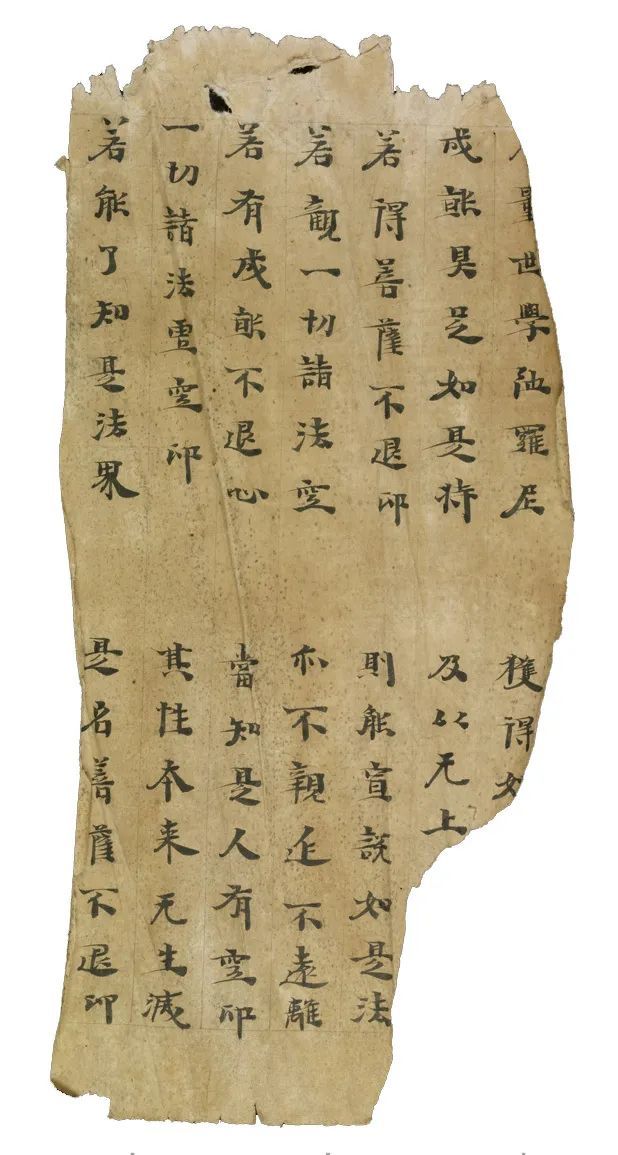 量世學陁羅尼　獲得如
成就具足如是持　及以无上
若得菩薩不退印　則能宣說如是法
若觀一切諸法空　亦不親近不遠離
若有成就不退心　當知是人有空印
一切諸法虛空印　其性本来无生滅
若能了知是法界　是名菩薩不退印